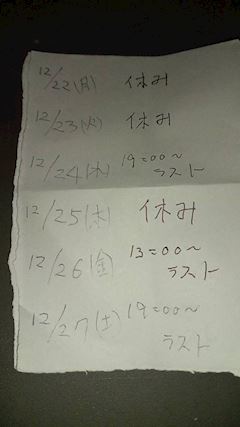 12/22(月) 休み
12/23(火) 休み
12/24(水) 19:00〜
ラスト
12/25(木) 休み
12/26(金) 13:00〜
ラスト
12/27(土) 19:00〜
ラスト